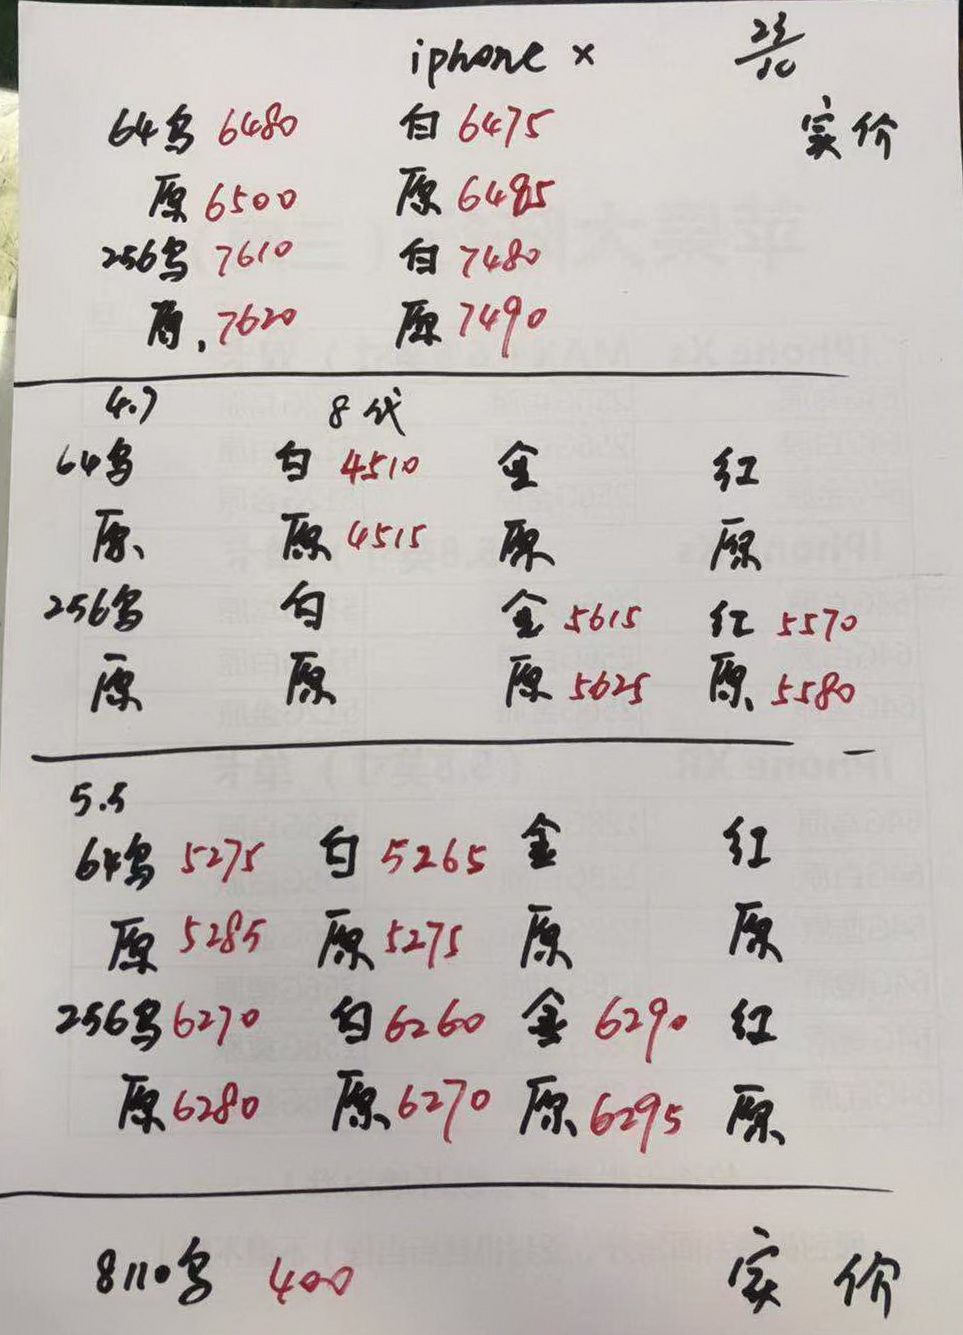 iphone x 23/10
64乌 6480 白 6475 实价
原 6500 原 6485
256乌 7610 白 7480
原. 7620 原 7490
4.7 8代
64乌 白 4510 金 红
原、 原 4515 原 原
256乌 白 金 5615 红 5570
原 原 原 5625 原、 5580
5.5
64乌 5275 白 5265 金 红
原 5285 原 5275 原 原
256乌 6270 白 6260 金 6290 红
原 6280 原、 6270 原、 6295 原、
8110乌 400 实价